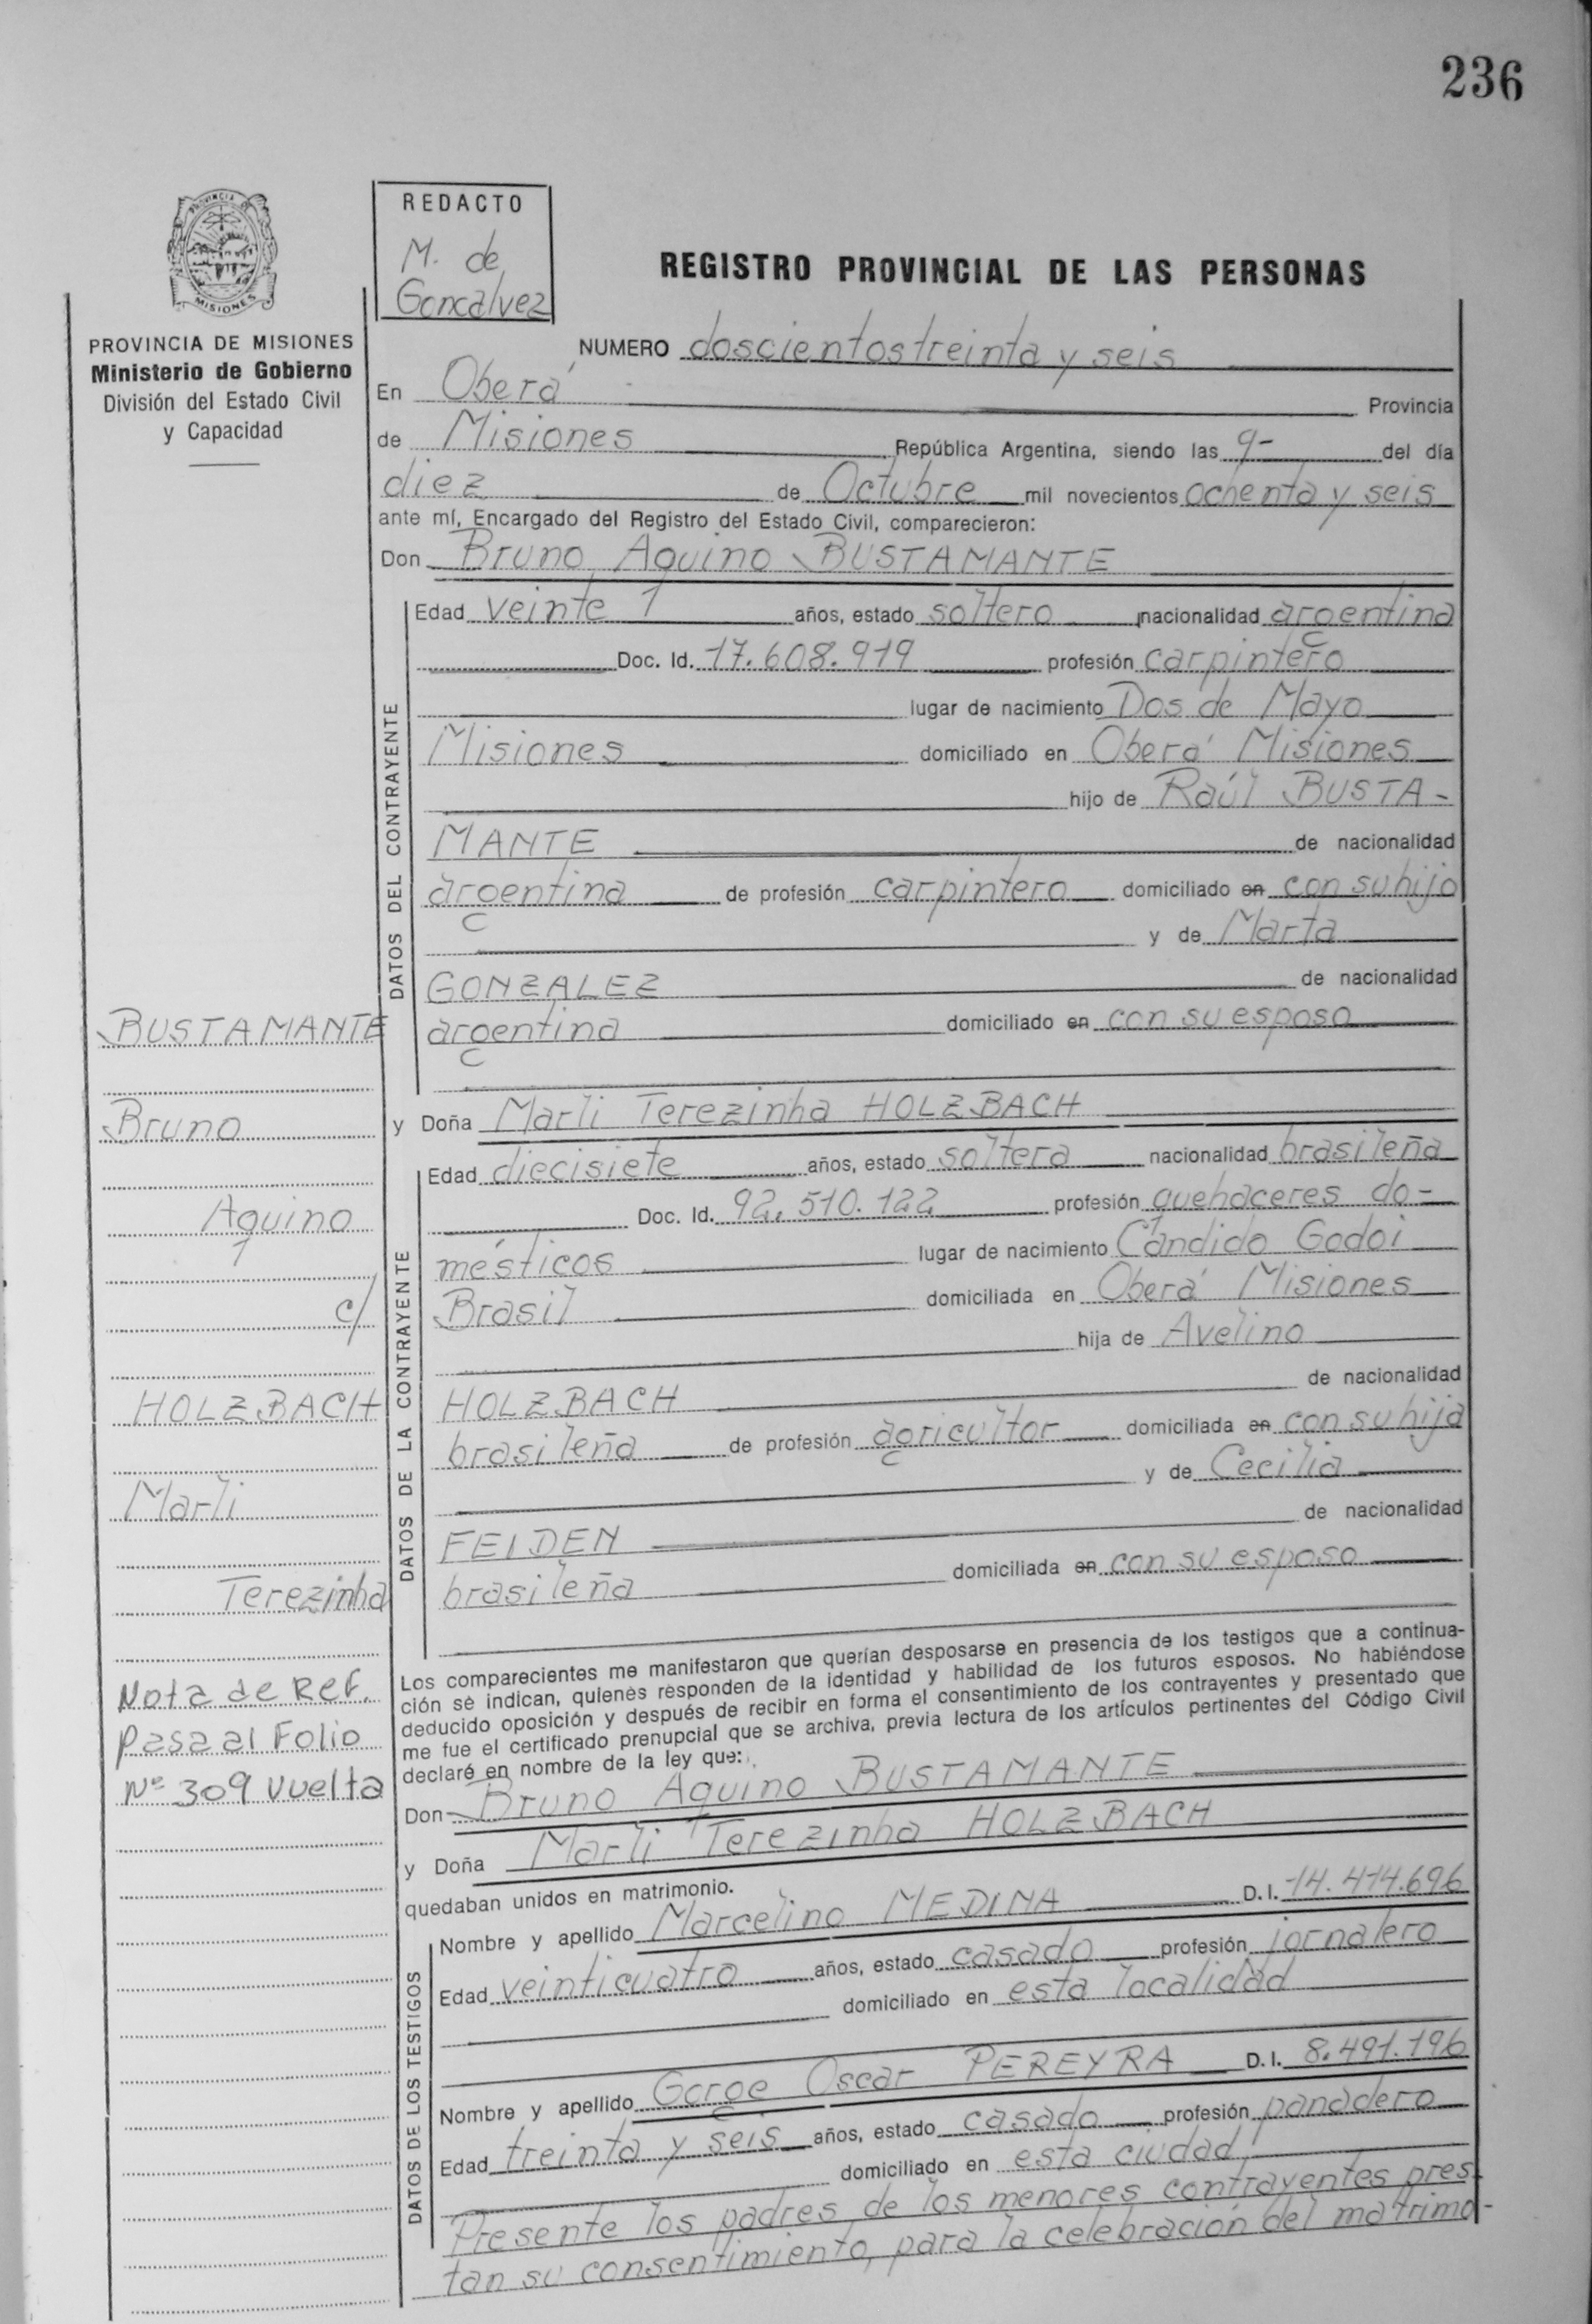 236
PROVINCIA DE
MISIONES
REDACTO
M. de
Goncalvez
PROVINCIA DE MISIONES
Ministerio de Gobierno
División del Estado Civil
y Capacidad
REGISTRO PROVINCIAL DE LAS PERSONAS
NUMERO doscientos treinta y seis
En Oberá Provincia
de Misiones República Argentina, siendo las 9- del día
diez de Octubre mil novecientos ochenta y seis
ante mí, Encargado del Registro del Estado Civil, comparecieron:
Don Bruno Aquino BUSTAMANTE
DATOS DEL CONTRAYENTE
Edad veinte años, estado soltero nacionalidad argentina
Doc. Id. 17.608.919 profesión carpintero
lugar de nacimiento Dos de Mayo
Misiones domiciliado en Oberá Misiones
hijo de Raúl BUSTA-
MANTE de nacionalidad
argentina de profesión carpintero domiciliado en con su hijo
y de Marta
GONZALEZ de nacionalidad
argentina domiciliado en con su esposo
y Doña Marli Terezinha HOLZBACH
DATOS DE LA CONTRAYENTE
Edad diecisiete años, estado soltera nacionalidad brasileña
Doc. Id. 92.510.122 profesión quehaceres do-
mésticos lugar de nacimiento Cándido Godoi
Brasil domiciliada en Oberá Misiones
hija de Avelino
HOLZBACH de nacionalidad
brasileña de profesión agricultor domiciliada en con su hija
y de Cecilia
FEIDEN de nacionalidad
brasileña domiciliada en con su esposo
BUSTAMANTE
Bruno
Aquino
c/
HOLZBACH
Marli
Terezinha
Nota de Ref.
Pasa al Folio
Nº 309 vuelta
Los comparecientes me manifestaron que querían desposarse en presencia de los testigos que a continua-
ción se indican, quienes responden de la identidad y habilidad de los futuros esposos. No habiéndose
deducido oposición y después de recibir en forma el consentimiento de los contrayentes y presentado que
me fue el certificado prenupcial que se archiva, previa lectura de los artículos pertinentes del Código Civil
declaré en nombre de la ley que:
Don Bruno Aquino BUSTAMANTE
y Doña Marli Terezinha HOLZBACH
quedaban unidos en matrimonio.
DATOS DE LOS TESTIGOS
Nombre y apellido Marcelino MEDINA D.I. 14.414.696
Edad veinticuatro años, estado casado profesión jornalero
domiciliado en esta localidad
Nombre y apellido Gorge Oscar PEREYRA D.I. 8.491.196
Edad treinta y seis años, estado casado profesión panadero
domiciliado en esta ciudad
Presente los padres de los menores contrayentes pres-
tan su consentimiento, para la celebración del matrimo-